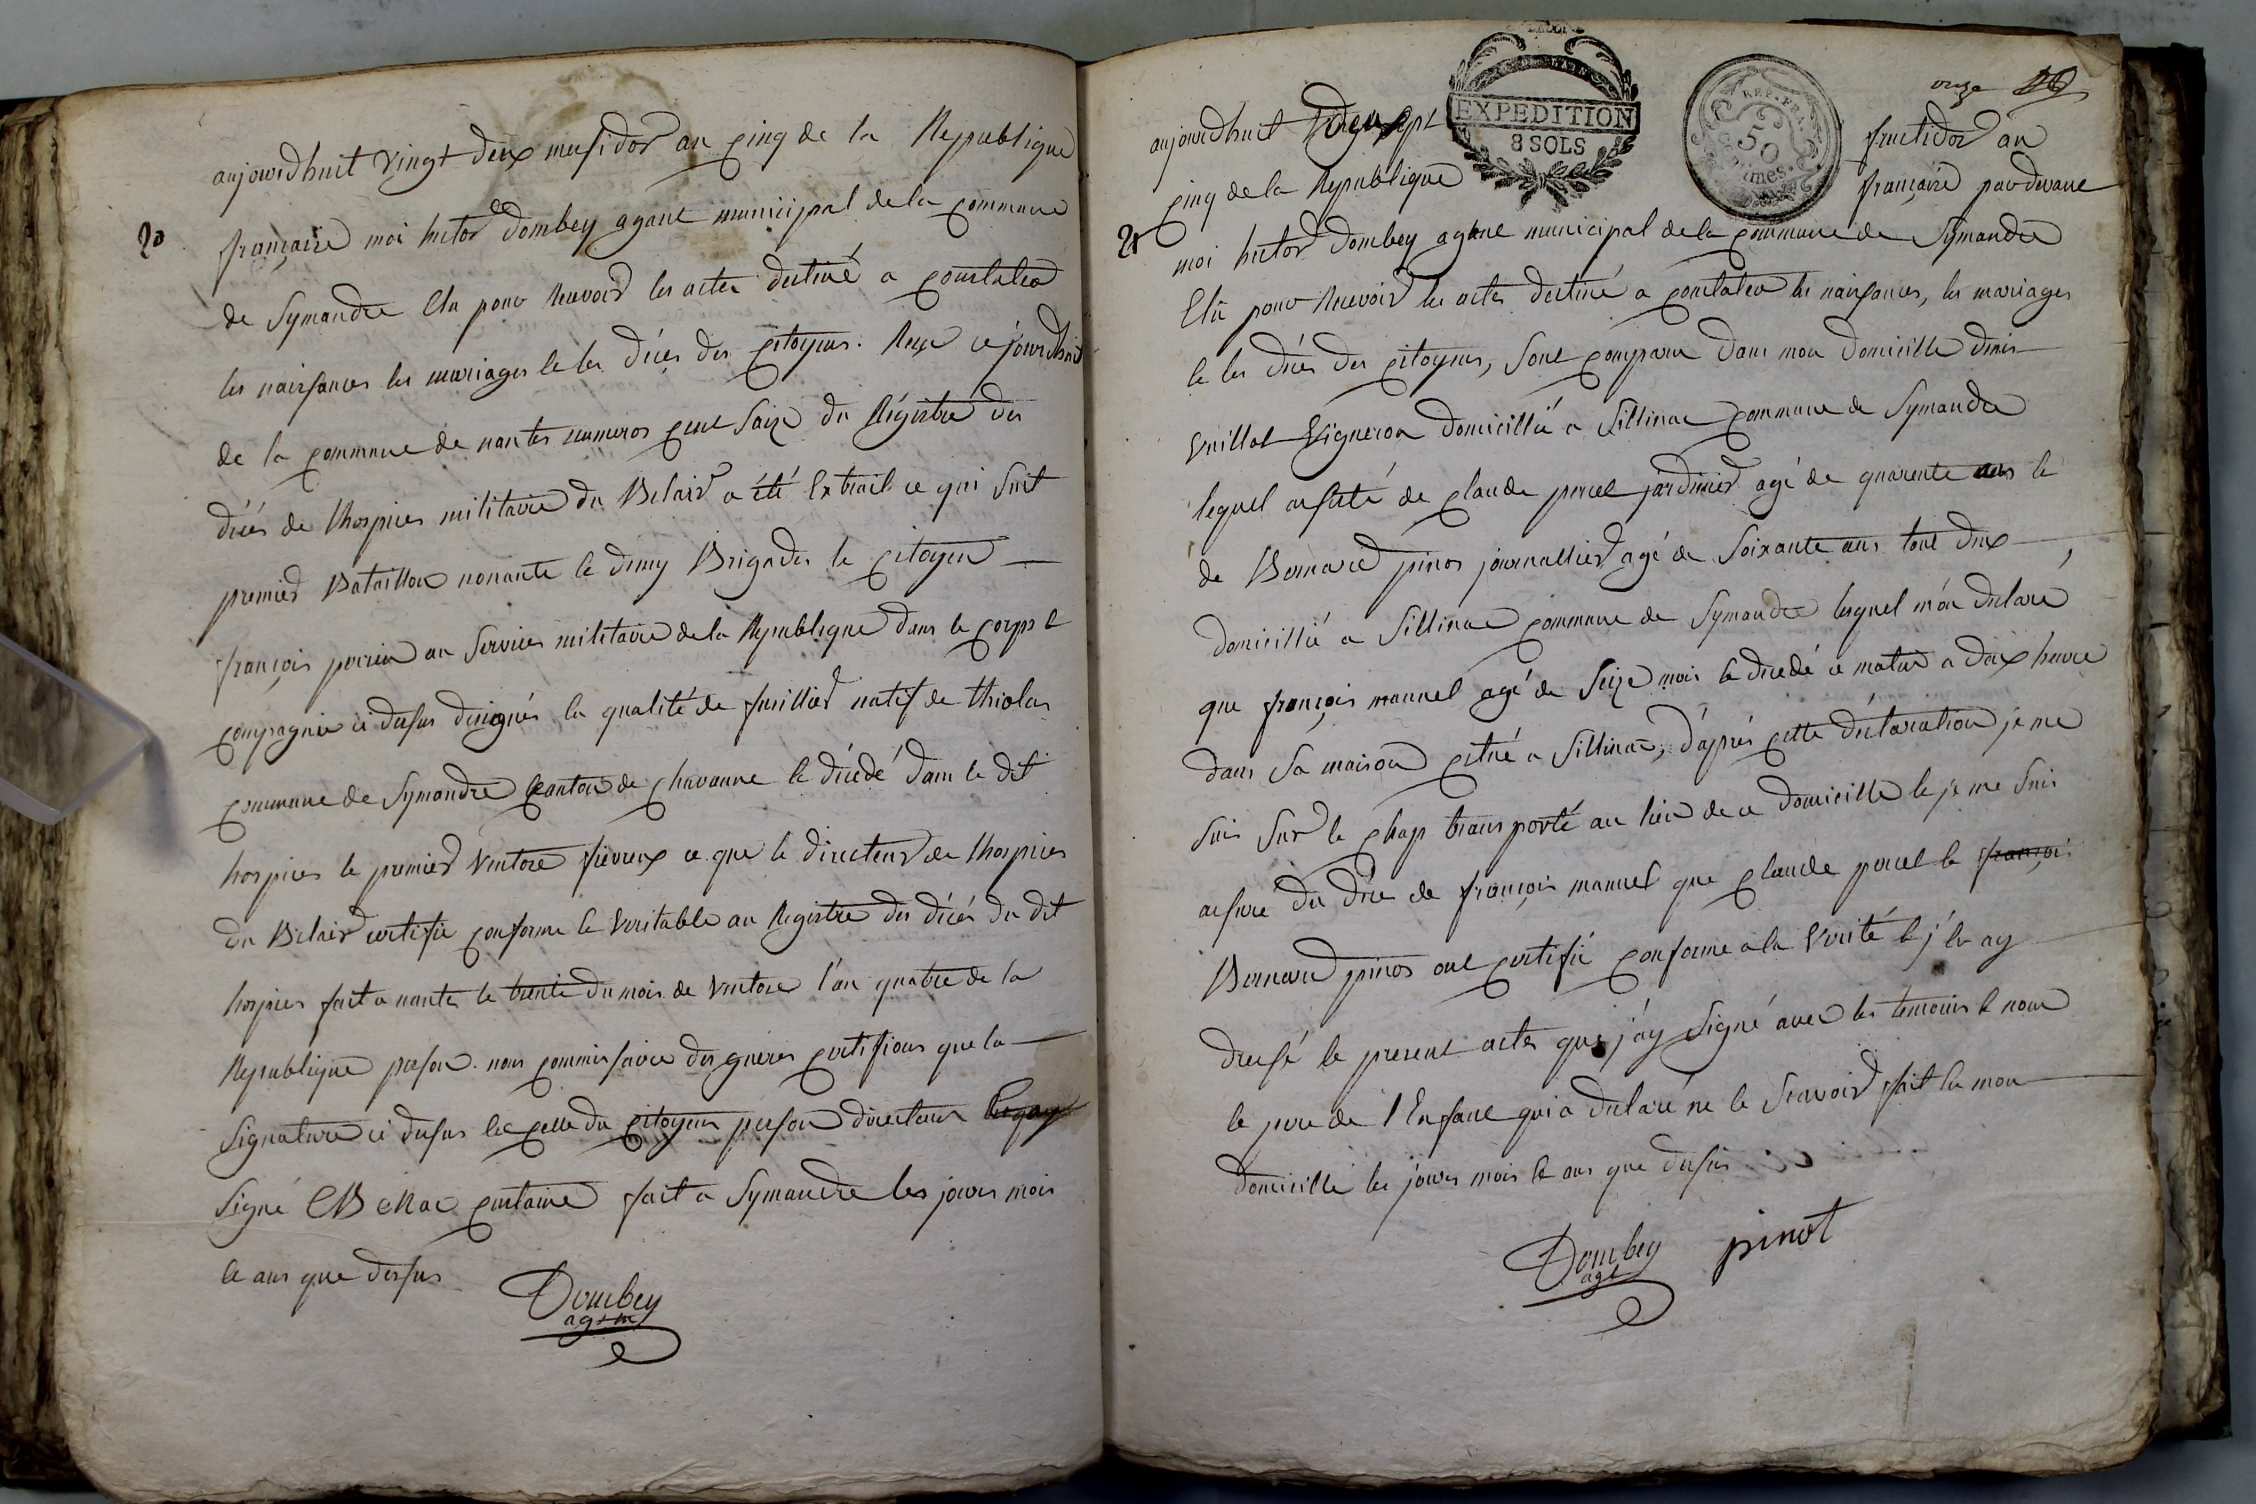 aujourdhuit vingt deux mesidor an cinq de la Republique
20
française moi hector Dombey agant municipal de la commune
de Symandre Elu pour Recevoir les actes destiné a constater
les naissances les mariages et les décés des citoyens. Reçu cejourdhuit
de la commune de nantes numeros cent saize du Régistre des
décés de lhospices militaire du Belair a été Extrait ce qui suit
premier Bataillon nonante et dimy Brigades le citoyen
françois perrin au services militaire de la Republique dans le corps et
compagnie ci desus designés la qualité de fusillier natif de thiolas
commune de Symandre canton de chavanne et décédé dans le dit
hospices le premier ventose fievreux ce que le directeur de lhospices
du Belair certifie conforme et veritable au Registre des décés du dit
hospices fait a nantes le trente du mois de ventose l'an quatre de la
Republique preson. nous commissaire des gueres certifions que la
signature ci desus est celle du citoyen preson directeur
signé fait a Symandre les jours mois
et ans que desus
Dombey
ag+m
onze
EXPEDITION
8 SOLS
REP. FRA.
50
aujourdhuit fructidor an
cinq de la Republique française pardevant
21
moi hector Dombey agent municipal de la commune de Symandre
Elü pour Recevoir les actes destiné a constater les naissances, les mariages
et les décés des citoyens, sont comparu dans mon domicille denis
Vuillot Vigneron domicillié a Sillinat commune de Symandre
lequel assisté de claude percet jardinier agé de quarente ans et
de Bernard pinos journallier agé de soixante ans tout deux
domicillié a Sillinat commune de Symandre lesquel mon déclaré
que françois manuel agé de seize mois et decedé ce matin a dix heure
dans sa maison citué a Sillinat, d'aprés cette déclaration je me
suis sur le chap transporté au lieu de ce domicille et je me suis
assuré du déce de françois manuel que claude percet et françois
Bernard pinos ont certifié conforme a la verité et j'en ay
dressé le present actes que j'ay signé avec les temoins et nom
le pere de l'Enfant qui a déclaré ne le scavoir fait En mon
domicille les jours mois et ans que desus
Dombey
agt
pinot